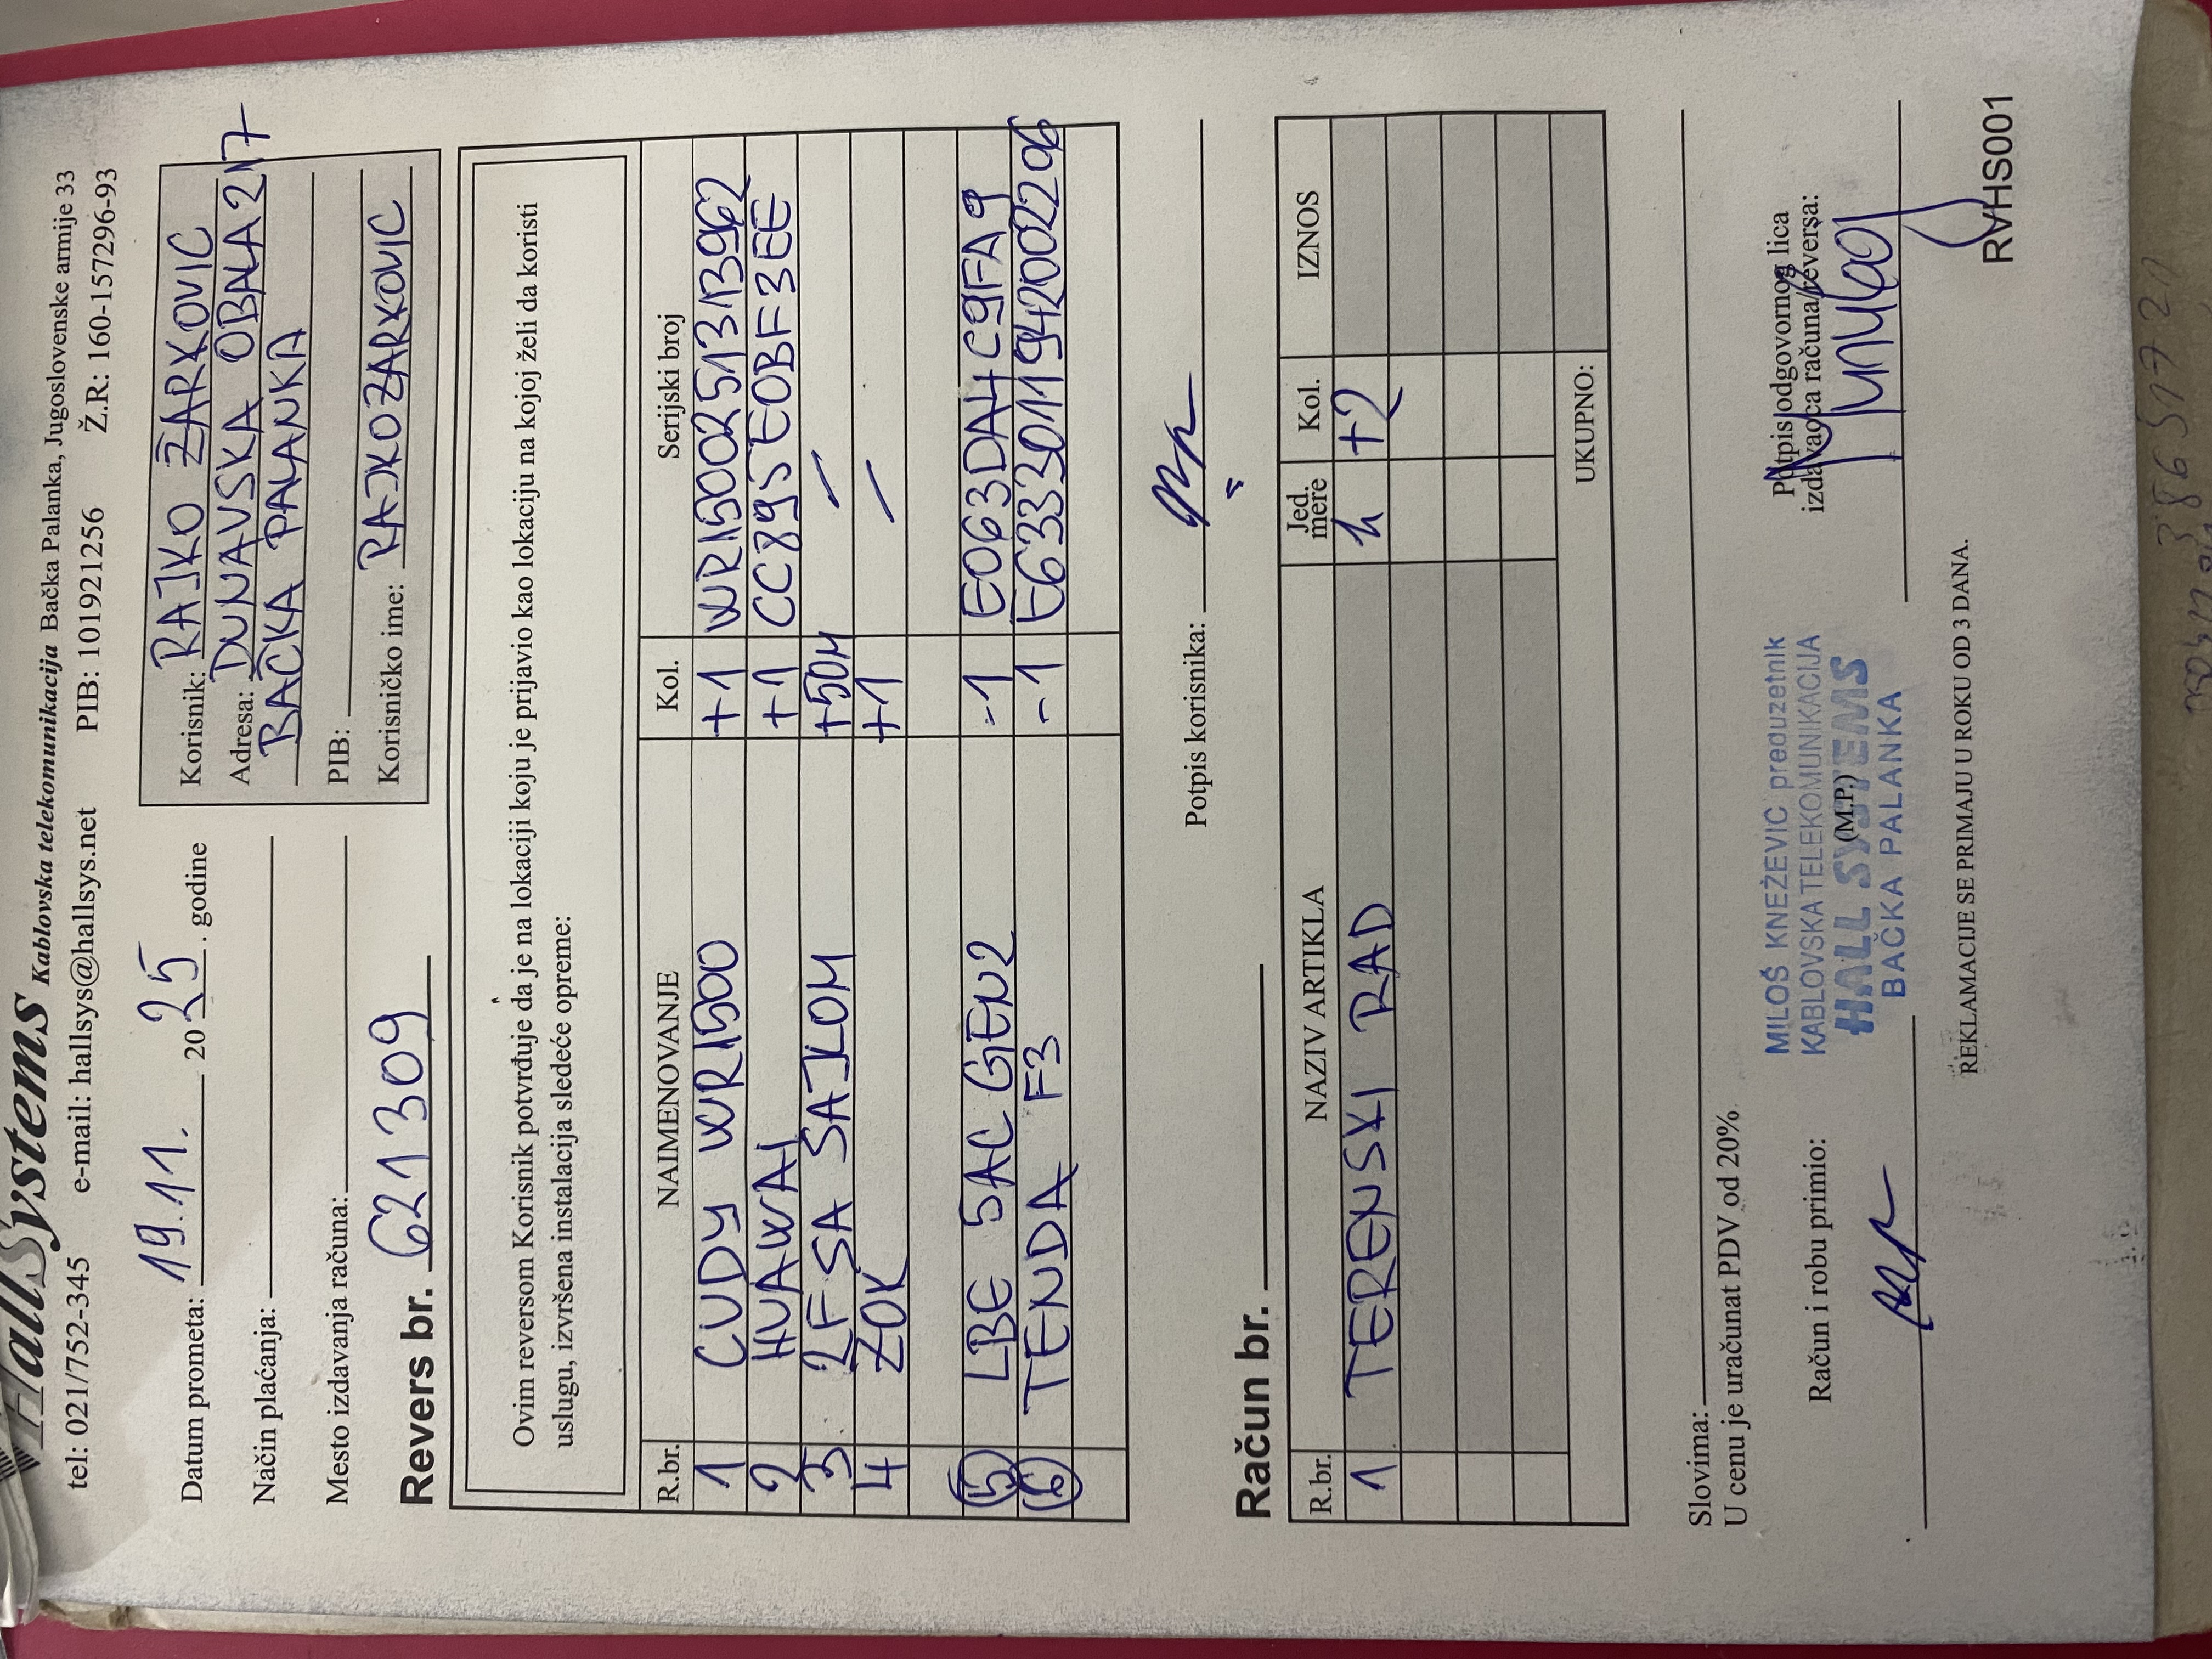 HallSystems Kablovska telekomunikacija Bačka Palanka, Jugoslovenske armije 33
tel: 021/752-345 e-mail: hallsys@hallsys.net PIB: 101921256 Ž.R: 160-157296-93
Datum prometa: 19.11. 2025. godine
Način plaćanja:
Mesto izdavanja računa:
Revers br. 621309
Korisnik: RAJKO ŽARKOVIC
Adresa: DUNAVSKA OBALA 217
BAČKA PALANKA
PIB:
Korisničko ime: RAJKOZARKOVIC
Ovim reversom Korisnik potvrđuje da je na lokaciji koju je prijavio kao lokaciju na kojoj želi da koristi
uslugu, izvršena instalacija sledeće opreme:
R.br. NAIMENOVANJE Kol. Serijski broj
1 CUDY WR1500 +1 WR1500251313962
2 HUAWAI +1 CC895E0BF3EE
3 2F SA SAJLOM +50M /
4 ZOK +1 /
5 LBE 5AC GEN2 -1 E063DA4C9FA9
6 TENDA F3 -1 E6333011942002296
Potpis korisnika:
Račun br.
R.br. NAZIV ARTIKLA Jed. mere Kol. IZNOS
1 TERENSKI RAD h +2
UKUPNO:
Slovima:
U cenu je uračunat PDV od 20%
Račun i robu primio:
MILOŠ KNEŽEVIĆ preduzetnik
KABLOVSKA TELEKOMUNIKACIJA
HALL SYSTEMS
(M.P.)
BAČKA PALANKA
Potpis odgovornog lica
izdavaoca računa/reversa:
REKLAMACIJE SE PRIMAJU U ROKU OD 3 DANA.
RVHS001